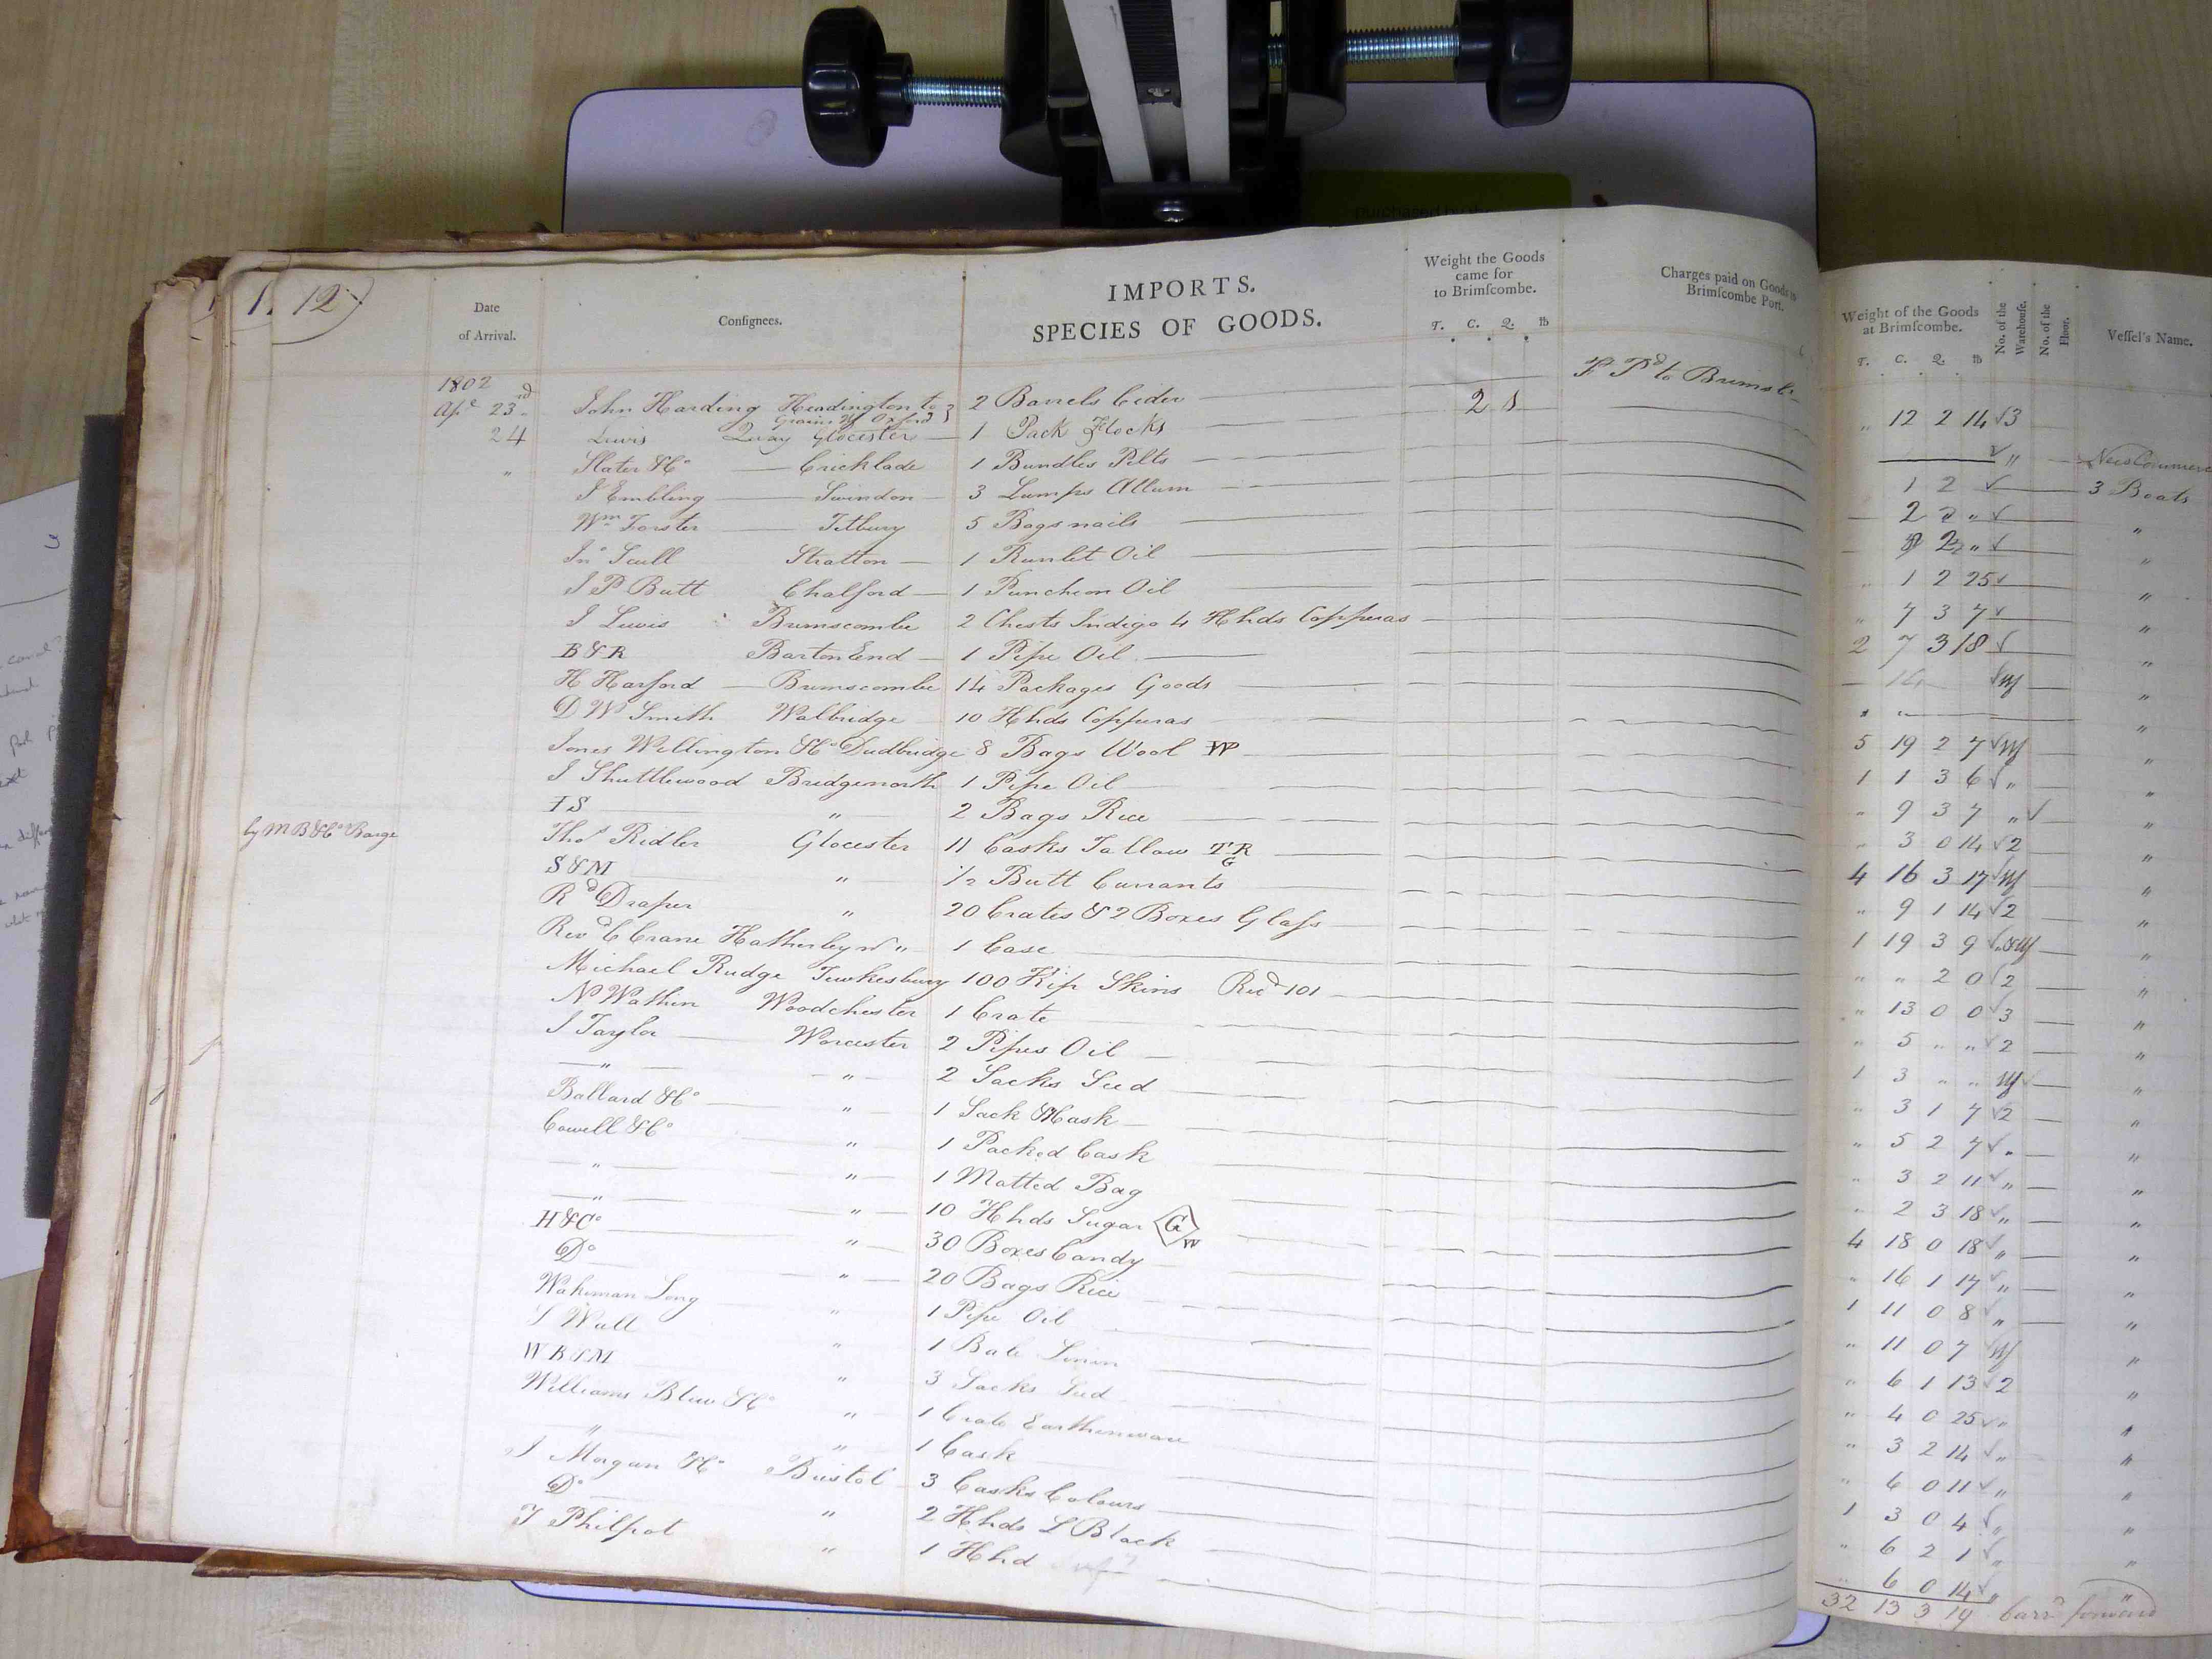 12
Date of Arrival.
Consignees.
IMPORTS.
SPECIES OF GOODS.
Weight the Goods came for to Brimscombe.
T. C. Q. lb
Charges paid on Goods to Brimscombe Port.
Weight of the Goods at Brimscombe.
T. C. Q. lb
No. of the Warehouse.
No. of the Floor.
Vessel's Name.
1802
Apl 23rd John Harding Headington to 2 Barrels Cider Pd to 12 2 14 3
Oxford
24 Lewis Quay Glocester 1 Pack Flocks 2
" Slater & Co Cricklade 1 Bundle Pelts 1 2 3 Boats
J Embling Swindon 3 Lumps Allum 2 "
Wm Forster Tetbury 5 Bags nails "
Jno Scull Stratton 1 Runlet Oil 1 2 25 "
J P Butt Chalford 1 Puncheon Oil " 7 3 7 "
J Lewis Brimscombe 2 Chests Indigo 4 Hhds Copperas 2 7 3 18 "
B & R Barton End 1 Pipe Oil 14 "
H Harford Brimscombe 14 Packages Goods "
D W Smith Walbridge 10 Hhds Copperas 5 19 2 7 "
Jones Wellington & Co Dudbridge 8 Bags Wool W 1 1 3 6 "
J Shuttlewood Bridgenorth 1 Pipe Oil " 9 3 7 "
I S " 2 Bags Rice " 3 0 14 2 "
by M B & Co Barge Thos Ridler Glocester 11 Casks Tallow TR G 4 16 3 17 "
S & M " 1/2 Butt Currants " 9 1 14 2 "
Rd Draper " 20 Crates & 2 Boxes Glass 1 19 3 9 "
Revd C Crane 1 Case " " 2 0 2 "
Michael Rudge Tewkesbury 100 Kip Skins Recd 101 " 13 0 0 3 "
N Wathen Woodchester 1 Crate " 5 " " 2 "
J Taylor Worcester 2 Pipes Oil 1 3 " " "
" " 2 Sacks Seed " 3 1 7 2 "
Ballard & Co " 1 Sack & Cask " 5 2 7 "
Cowell & Co " 1 Packed Cask " 3 2 11 " "
" " 1 Matted Bag " 2 3 18 " "
" " 10 Hhds Sugar G W 4 18 0 18 " "
H & Co " 30 Boxes Candy " 16 1 17 " "
Do " 20 Bags Rice 1 11 0 8 " "
Wakeman Long " 1 Pipe Oil " 11 0 7 "
S Wall " 1 Bale Linen " 6 1 13 2 "
W B & M " 3 Sacks Seed " 4 0 25 " "
Williams Blew & Co " 1 Crate Earthenware " 3 2 14 " "
" " 1 Cask " 6 0 11 " "
J Morgan & Co Bristol 3 Casks Colours 1 3 0 4 " "
Do " 2 Hhds L Black " 6 2 1 " "
T Philpot " 1 Hhd " 6 0 14 " "
32 13 3 19 Carrd forward